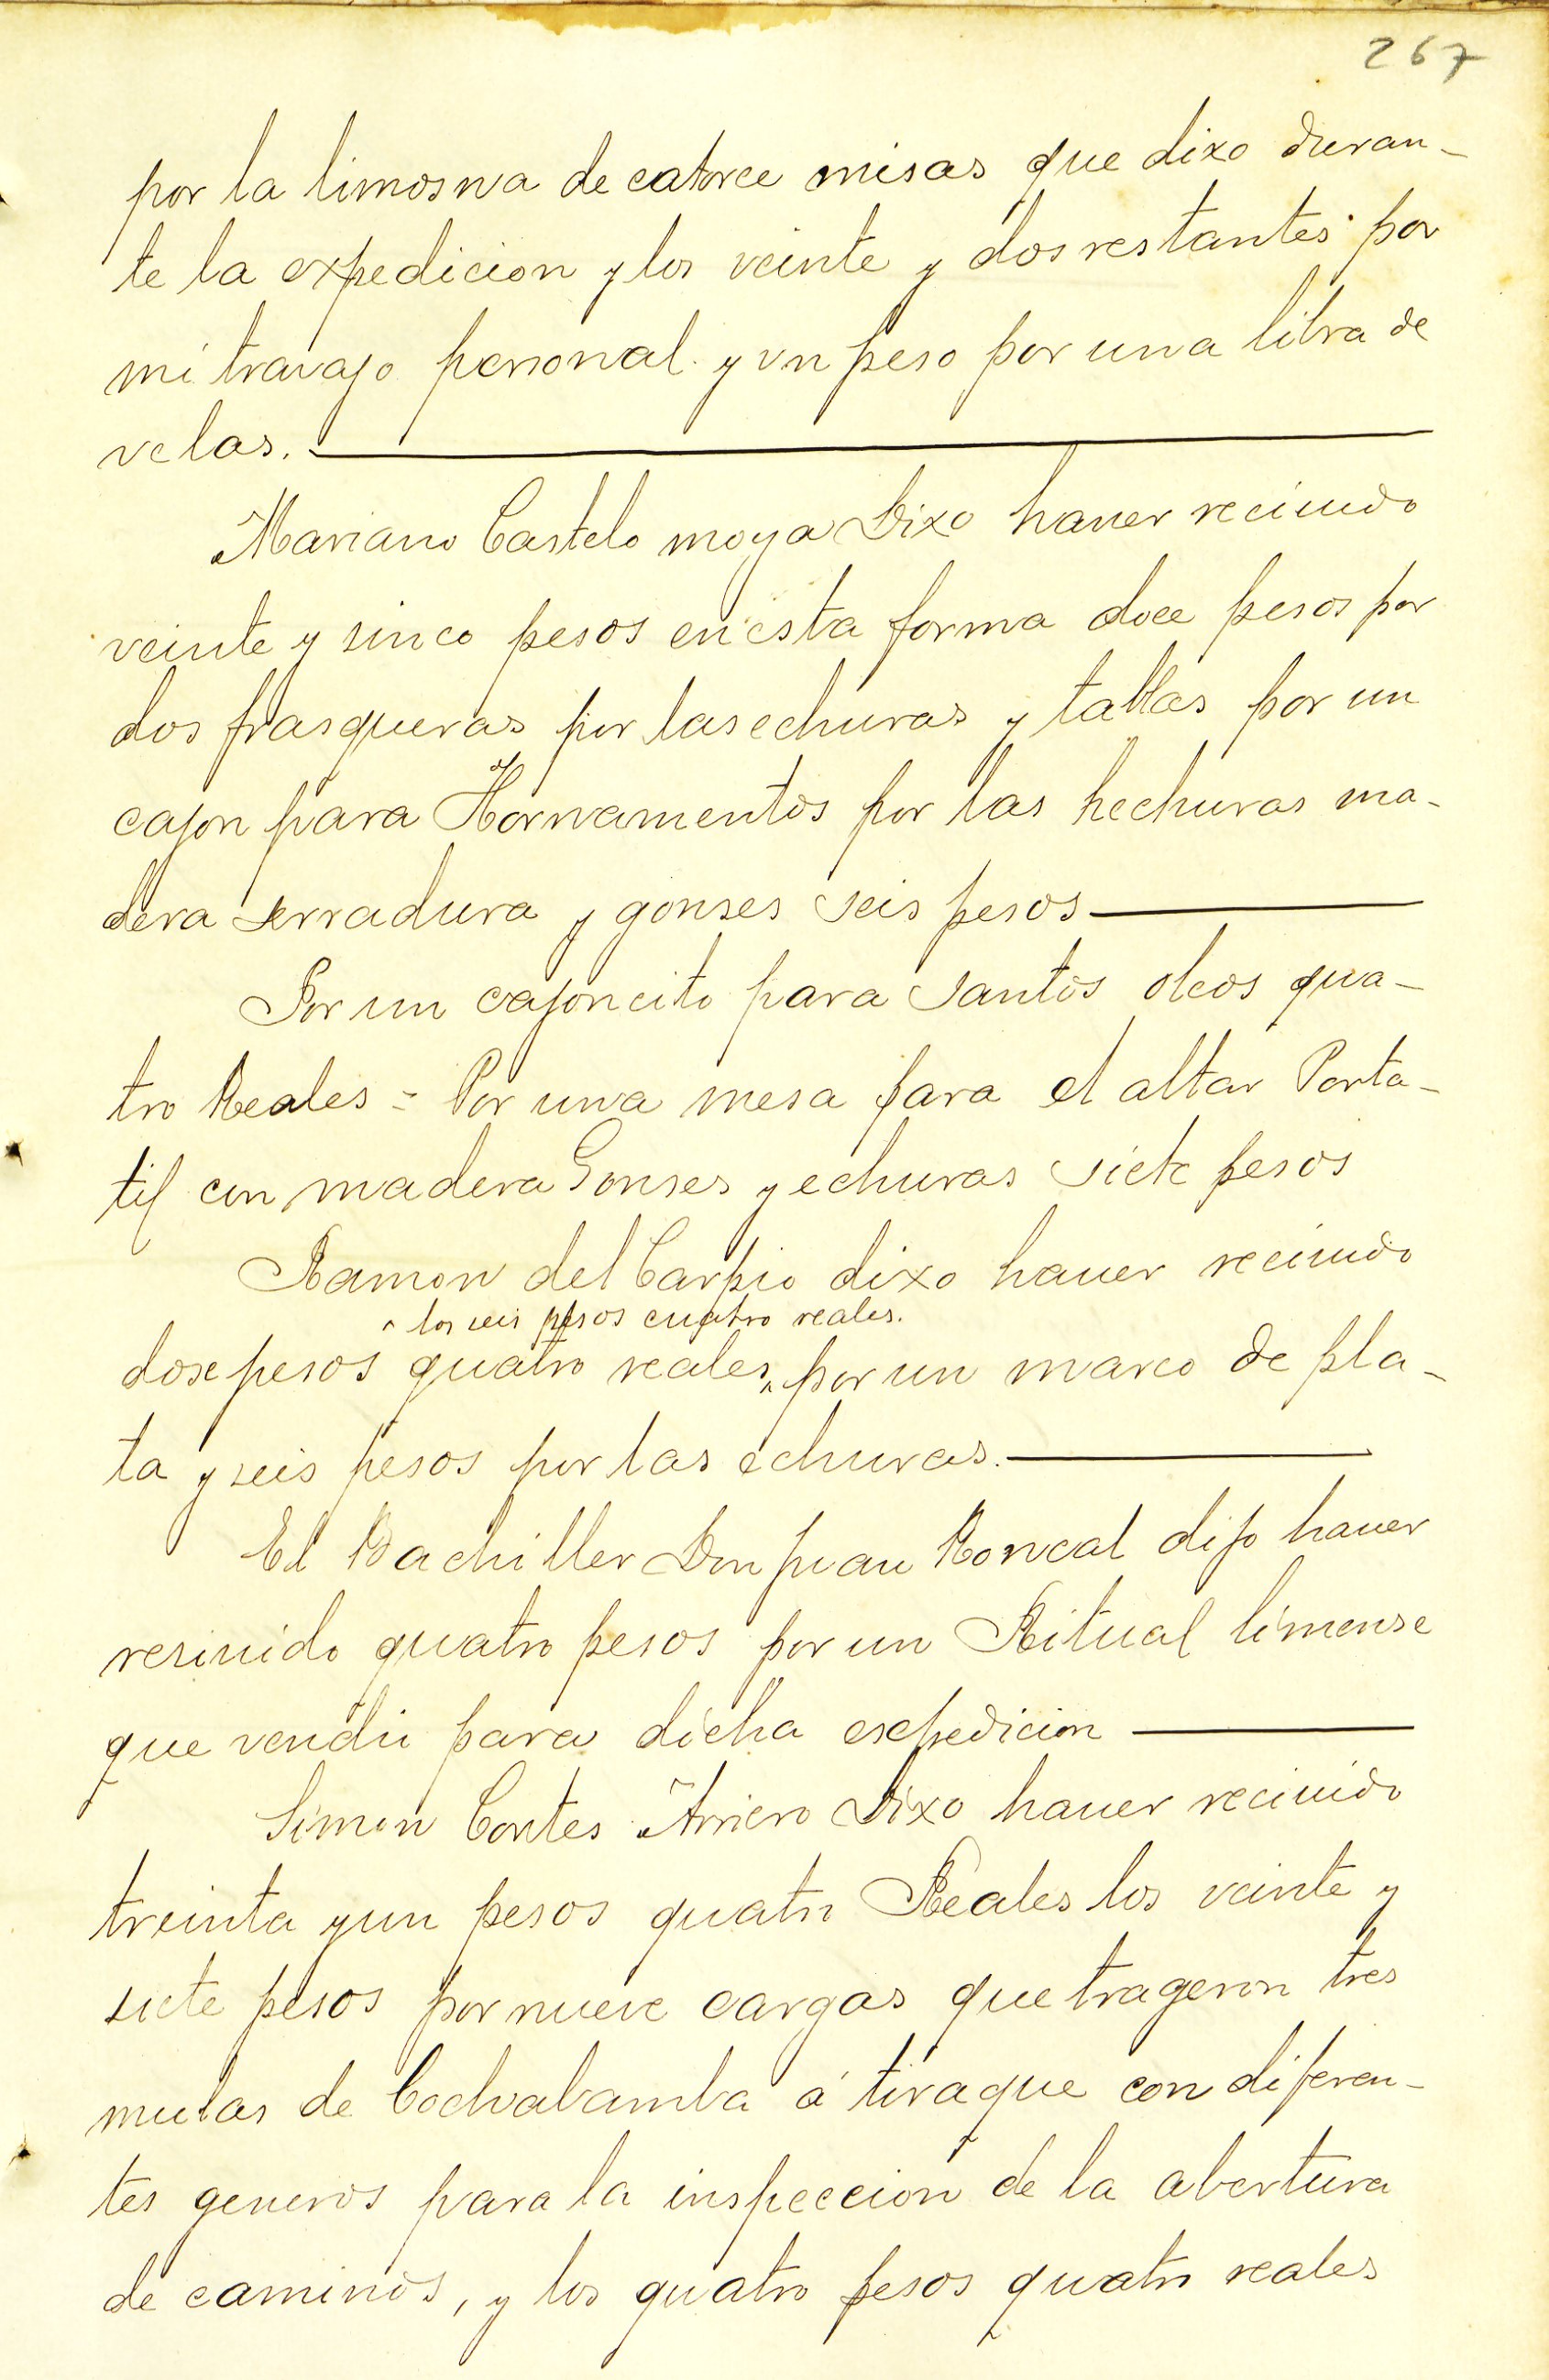 267
por la limosna de catorce misas que dixo duran-
te la expedicion y los veinte y dos restantes por
mi travajo personal y vn peso por una libra de
velas.
Mariano Castelo moya Dixo haver recivido
veinte y sinco pesos en esta forma doce pesos por
dos frasqueras por las echuras y tablas por un
cajon para Hornamentos por las hechuras ma-
dera serradura y gonses seis pesos
Por un cajoncito para santos oleos qua-
tro Reales = Por una mesa para el altar Porta-
til con madera Gonses y echuras siete pesos
Ramon del Carpio dixo haver recivido
^ los seis pesos cuatro reales.
dose pesos quatro reales ^ por un marco de pla-
ta y seis pesos por las echuras.
El Bachiller Don Juan Roncal dijo haver
resivido quatro pesos por un Ritual limense
que vendii para dicha esxpedicion
Simon Cortes Arriero Dixo haver recivido
treinta y un pesos quatro Reales los veinte y
siete pesos por nueve cargas que trageron tres
mulas de Cochabamba á tiraque con diferen-
tes generos para la inspeccion de la abertura
de caminos, y los quatro pesos quatro reales